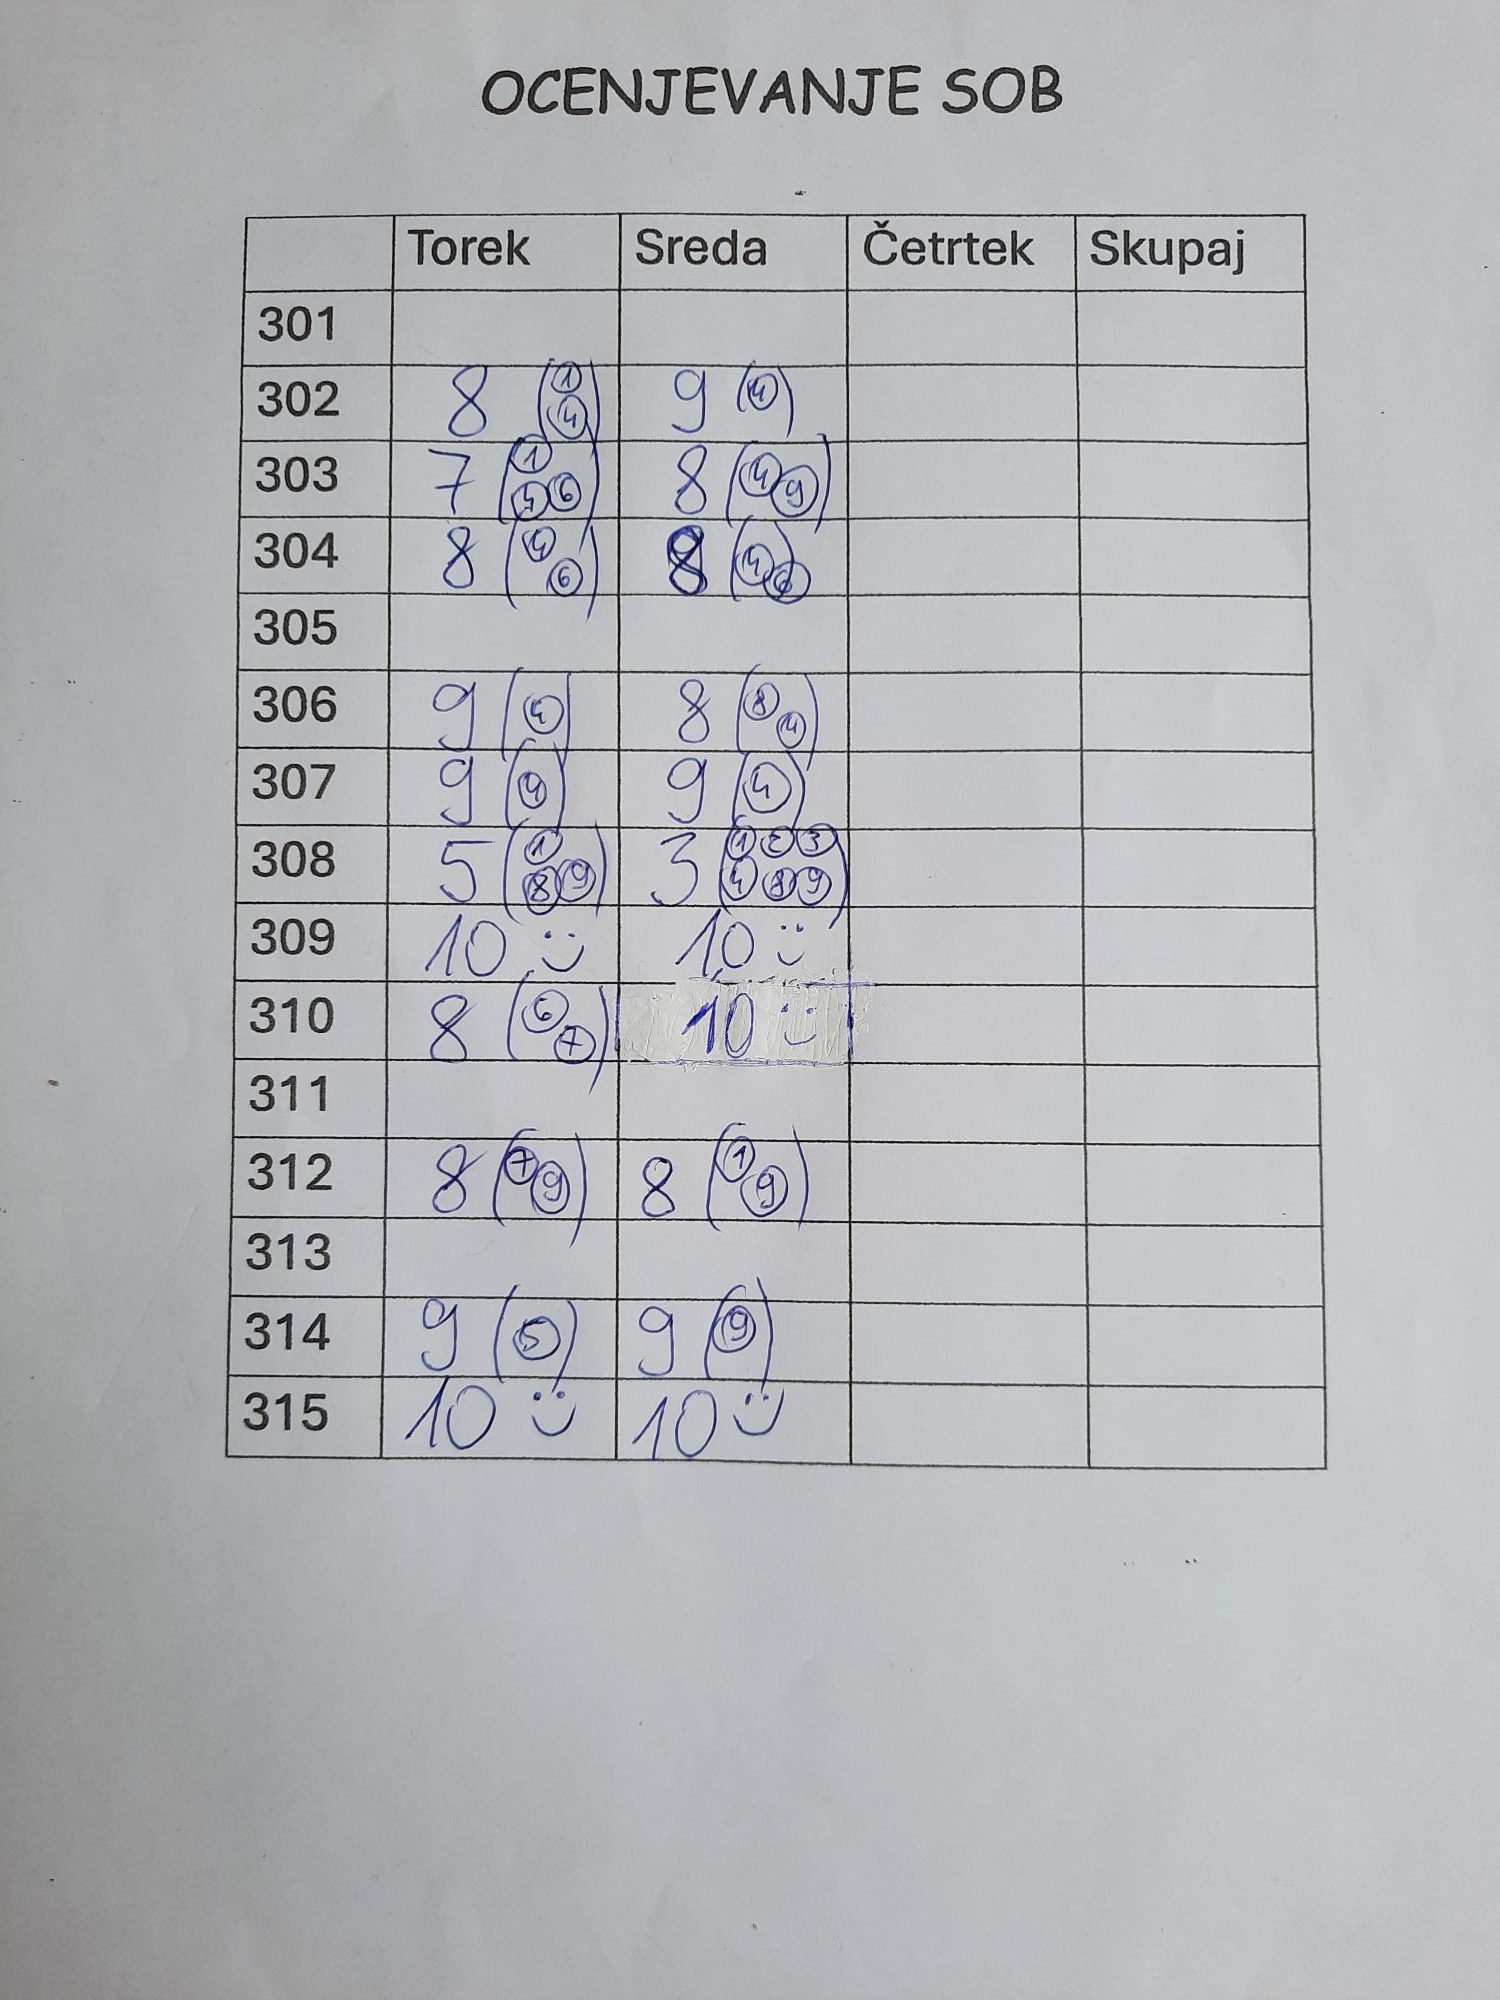 OCENJEVANJE SOB
Torek Sreda Četrtek Skupaj
301
302 8 (1 4) 9 (4)
303 7 (1 4 6) 8 (4 9)
304 8 (4 6) 8 (4 6)
305
306 9 (4) 8 (8 4)
307 9 (4) 9 (4)
308 5 (1 8 9) 3 (1 2 3 4 8 9)
309 10 :) 10 :)
310 8 (6 7) 10 :)
311
312 8 (7 9) 8 (1 9)
313
314 9 (5) 9 (9)
315 10 :) 10 :)